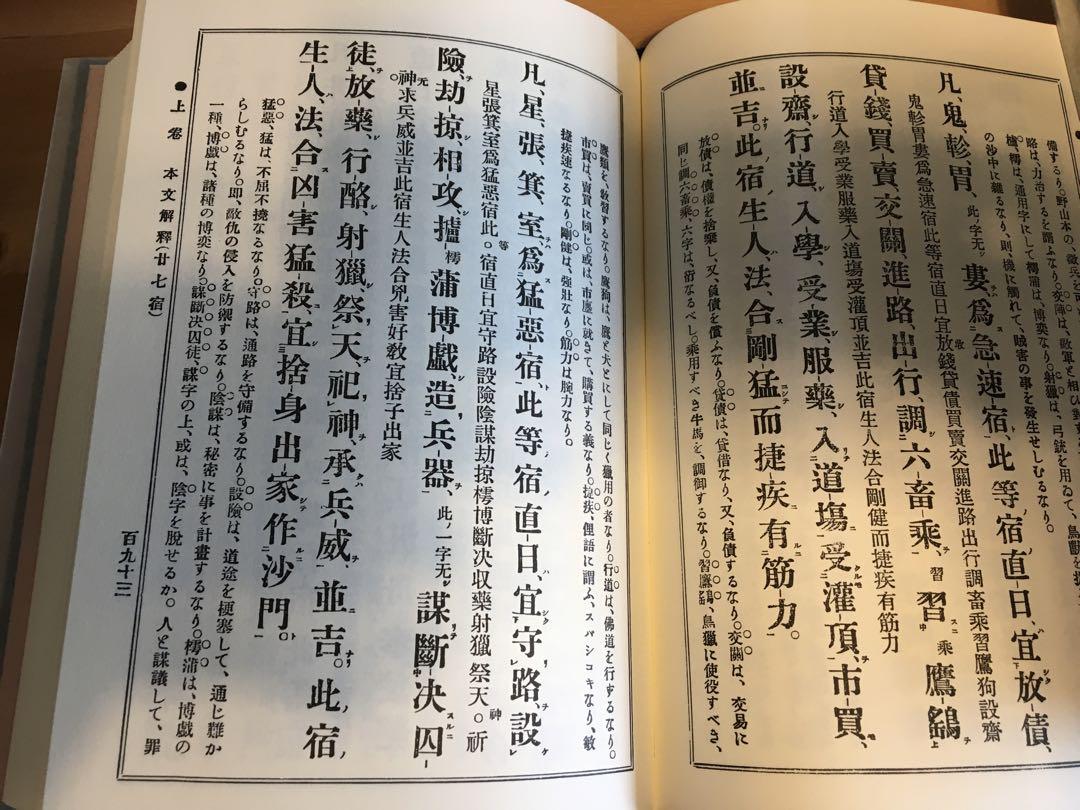 備するなり。野山本の、
路は、力治するを謂ふなり。交陣は、敵軍と相ひ對
樗は、通用字にして樗浦は、博奕なり。射獵は、弓銃を用ゐて、鳥獸を
の沙中に雜るなり、則、機に觸れて、賊害の事を發生せしむるなり。
凡、鬼、軫、胃、此、字无。婁、爲急速宿、此等宿直日、宜放債、
鬼軫胃婁爲急速宿此等宿直日宜放錢貸債買賣交關進路出行調畜乘習鷹狗設齋
貸錢、買賣、交關、進路、出行、調六畜乘、習乘鷹鷂、
行道入學受業服藥入道塲受灌頂並吉此宿生人法合剛健而捷疾有筋力
設齋、行道、入學、受業、服藥、入道塲、受灌頂、市買、
並吉。此宿生人、法合剛猛而捷疾有筋力。
放債は、債權を捨棄し、又、負債を償ふなり。貸債は、貸借なり、又、負債するなり。交關は、交易に
同じ調六畜乘、六字は、衍なるべし。乘用すべき牛馬を、調御するなり。習鷹鷂、鳥獵に使役すべき、
鷹類を、敎習するなり。鷹狗は、鷹と犬とにして同じく獵用の者なり。行道は、佛道を行ずるなり。
市買は、賣買に同じ。或は、市廛に就きて、購買する義なり。捷疾、俚語に謂ふ、スバシコキなり、敏
捷疾速なるなり。剛健は、强壯なり。筋力は腕力なり。
凡、星、張、箕、室、爲猛惡宿、此等宿直日、宜守路、設
星張箕室爲猛惡宿此。等宿直日宜守路設險陰謀劫掠樗博斷决収藥射獵祭天。神祈
險、劫掠、相攻、攎樗蒲博戲、造兵器、此ノ一字无。謀斷决囚
神求兵威並吉此宿生人法合兇害好敎宜捨子出家
徒、放藥、行酷、射獵、祭天、祀神、承兵威、並吉。此宿
生人、法合凶害猛殺、宜捨身出家作沙門。
猛惡、猛は、不屈不撓なるなり。守路は、通路を守備するなり。設險は、道途を梗塞して、通じ難か
らしむるなり。卽、敵仇の侵入を防禦するなり。陰謀は、秘密に事を計畫するなり。樗蒲は、博戲の
一種、博戲は、諸種の博奕なり。謀斷决囚徒、謀字の上、或は、陰字を脫せるか。人と謀議して、罪
●上卷 本文解釋(廿七宿) 百九十三